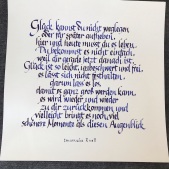 Glück kannst du nicht verlegen
oder für später aufheben,
hier und heute musst du es leben.
Du bekommst es nicht einfach,
weil dir gerade jetzt danach ist.
Glück ist so leicht, unbeschwert und frei,
es lässt sich nicht festhalten,
darum lass es los,
damit es ganz groß werden kann,
es wird wieder und wieder
zu dir zurückkommen und
vielleicht bringt es noch viel
schönere Momente als diesen Augenblick.